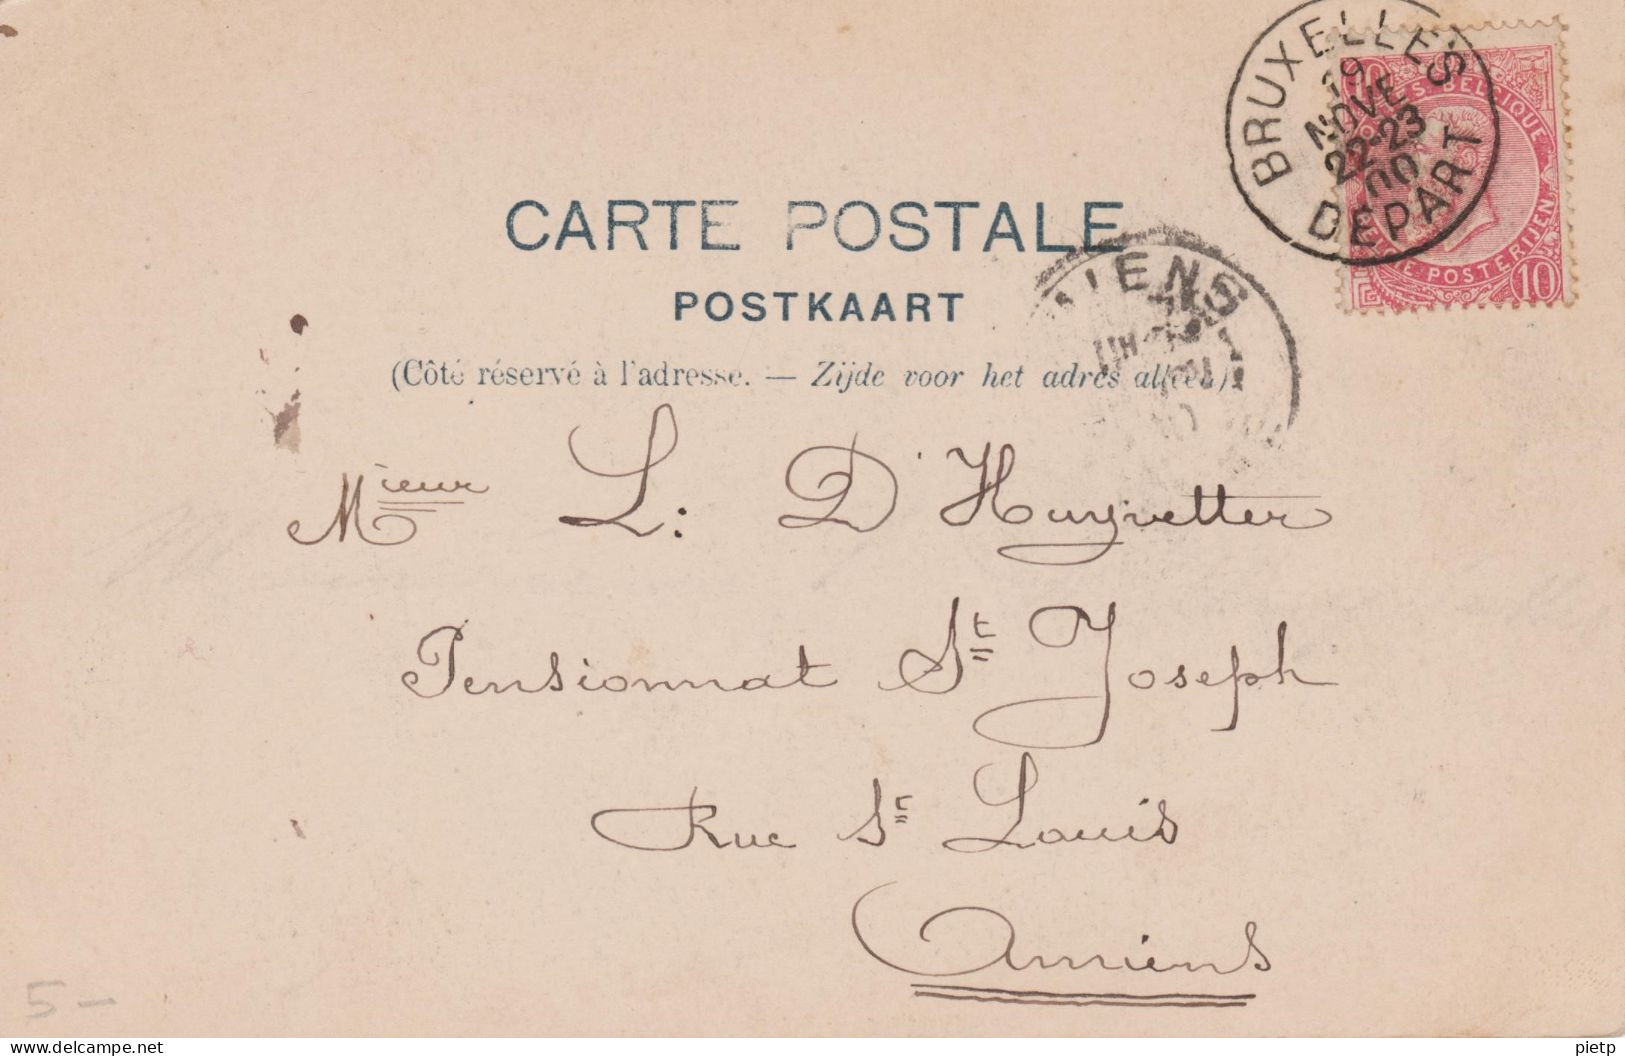 BRUXELLES
19
NOVE
22-23
00
DEPART
10
POSTERIJEN 10
CARTE POSTALE
POSTKAART
(Côté réservé à l'adresse. — Zijde voor het adres alleen.)
Mieur L: D'Huyvetter
Pensionnat St Joseph
Rue St Louis
Amiens
5 –
delcampe.net
pietp